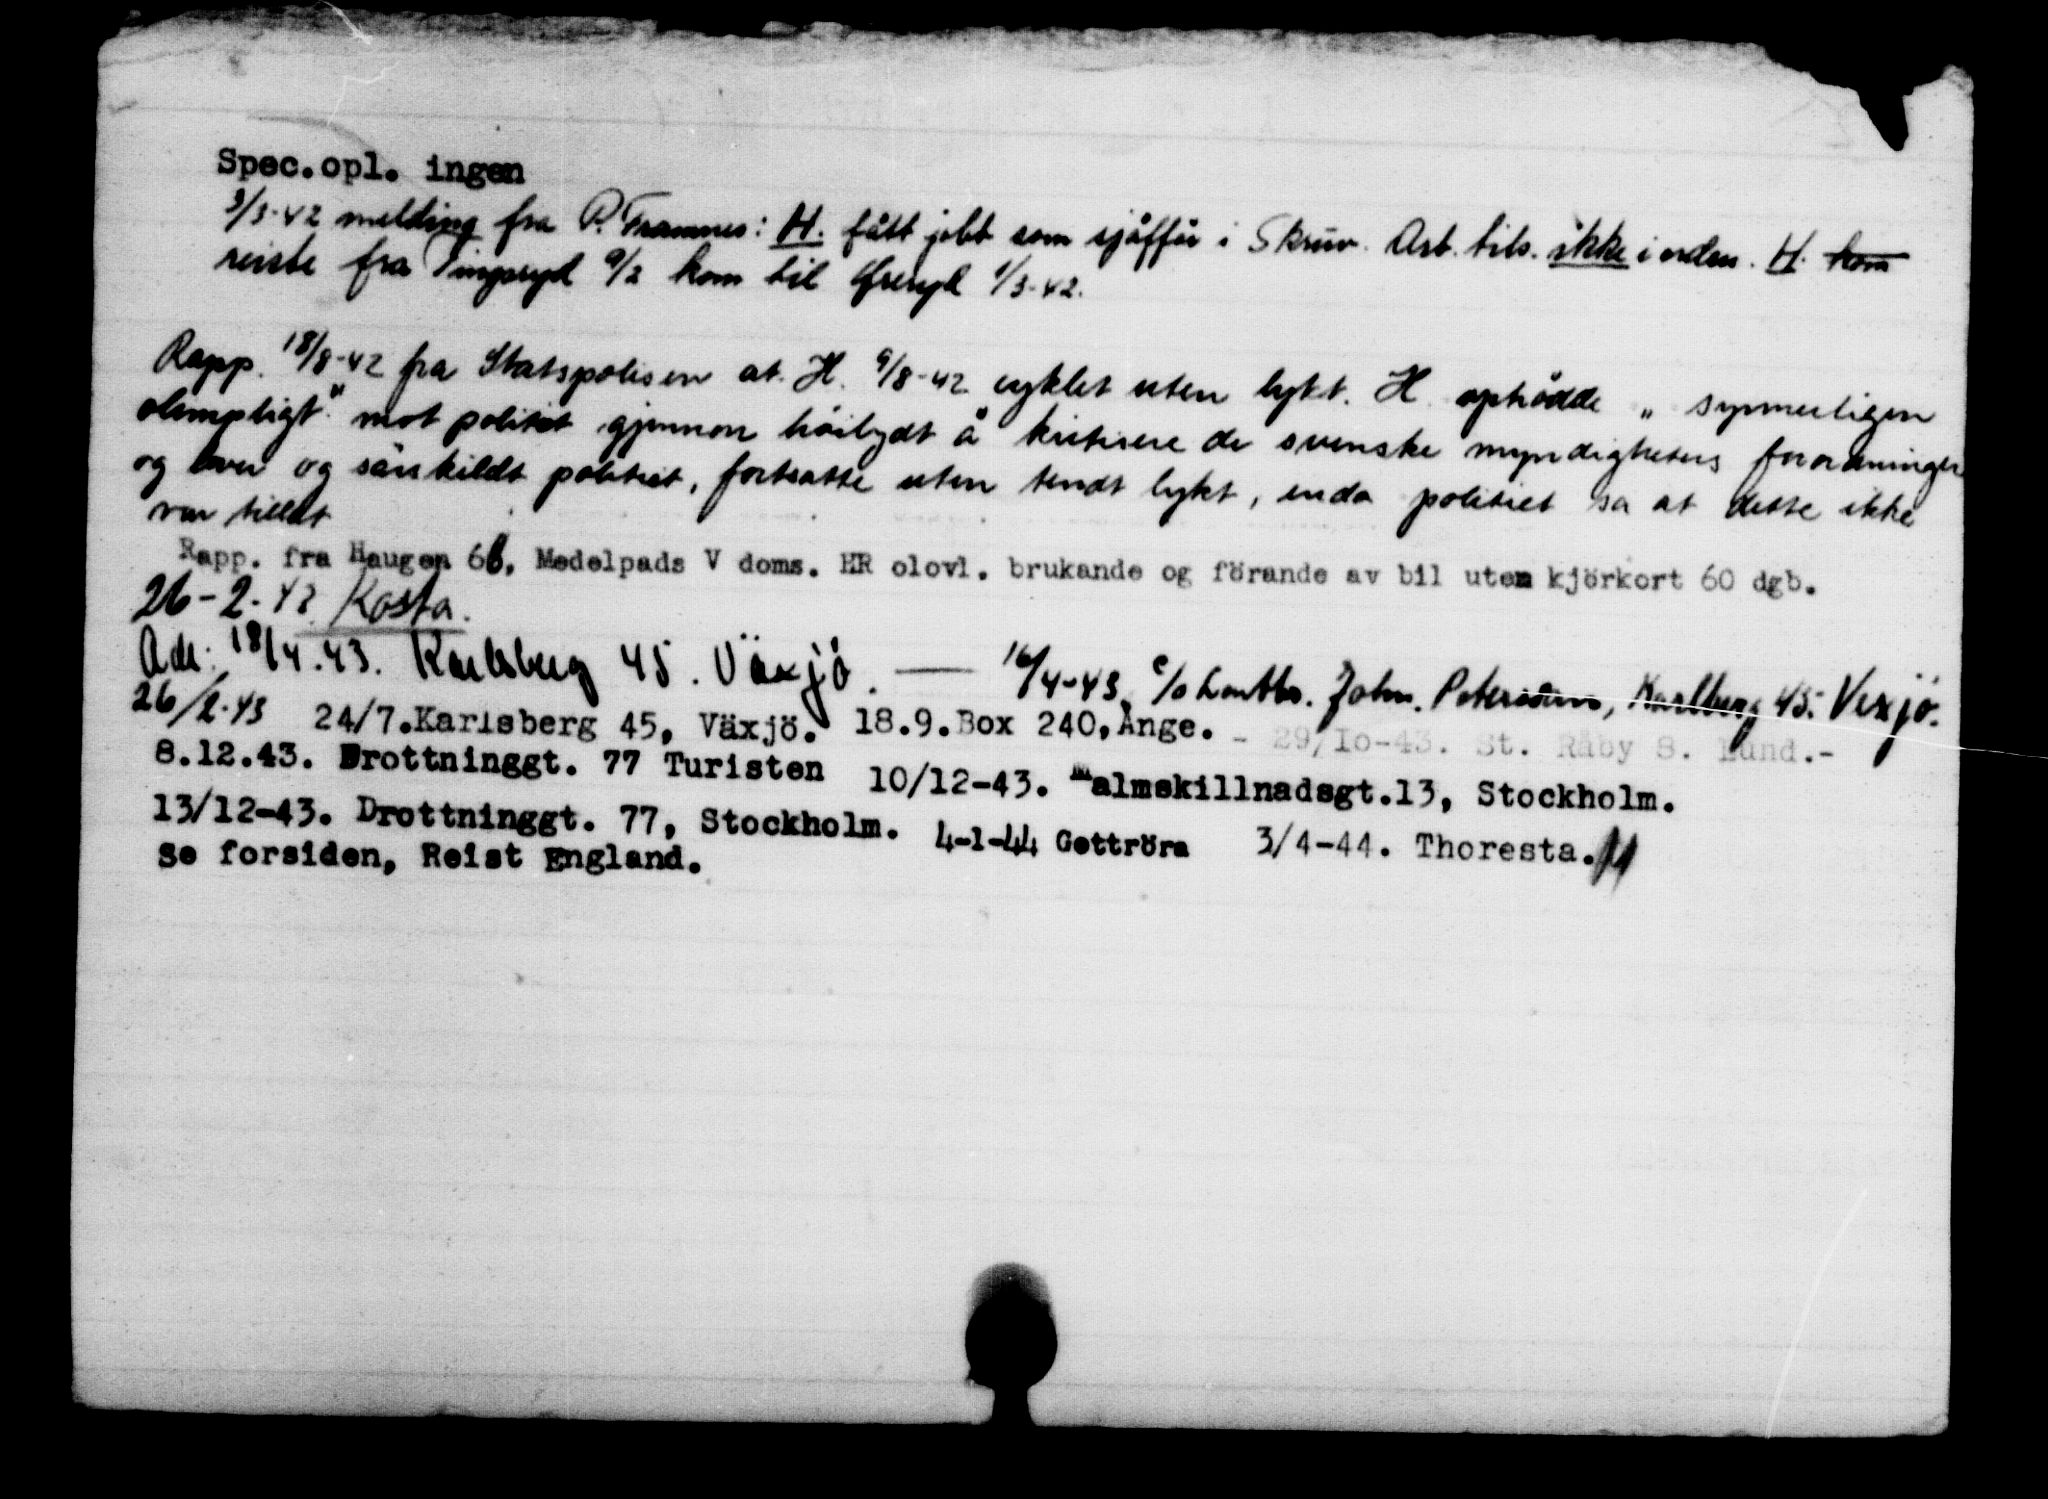 Spec.opl. ingen
3/3-42 melding fra P. Framnes: H. fått jobb som sjåffør i Skruv. Arb. tils. ikke i orden. H. kom
reiste fra Tingsryd 9/2 kom til Greryd 1/3-42.
Rapp. 18/8-42 fra Statspolisen at H. 9/8-42 cyklet uten lykt. H optrådde „ synnerligen
olempligt" mot politiet gjennom høilydt å kritisere de svenske myndigheters forordninger
og lover og särskildt politiet, fortsatte uten tendt lykt, enda politiet sa at dette ikke
var tillat
Rapp. fra Haugen 66, Medelpads V doms. HR olovl. brukande og förande av bil uten kjörkort 60 dgb.
26-2-42 Kosta.
Adr: 18/4.43. Karlsberg 45. Växjö. — 16/4-43 c/o Lantbr. John. Petersson, Karlberg 45. Vexjö.
26/2-43 24/7.Karlsberg 45, Växjö. 18.9.Box 240,Ånge. - 29/10-43. St. Råby S. Lund.-
8.12.43. Drottninggt. 77 Turisten 10/12-43. Malmskillnadsgt.13, Stockholm.
13/12-43. Drottninggt. 77, Stockholm. 4-1-44 Gottröra 3/4-44. Thoresta.
Se forsiden, Reist England.